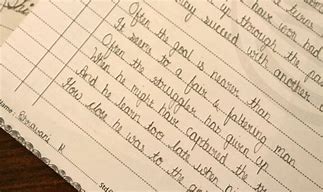 have won had
up through the pa
may succeed with another
Often the goal is nearer than
It seems to a fair & faltering man
Often the struggler has given up
When he might have captured the
And he learn too late when
How close he was to the go